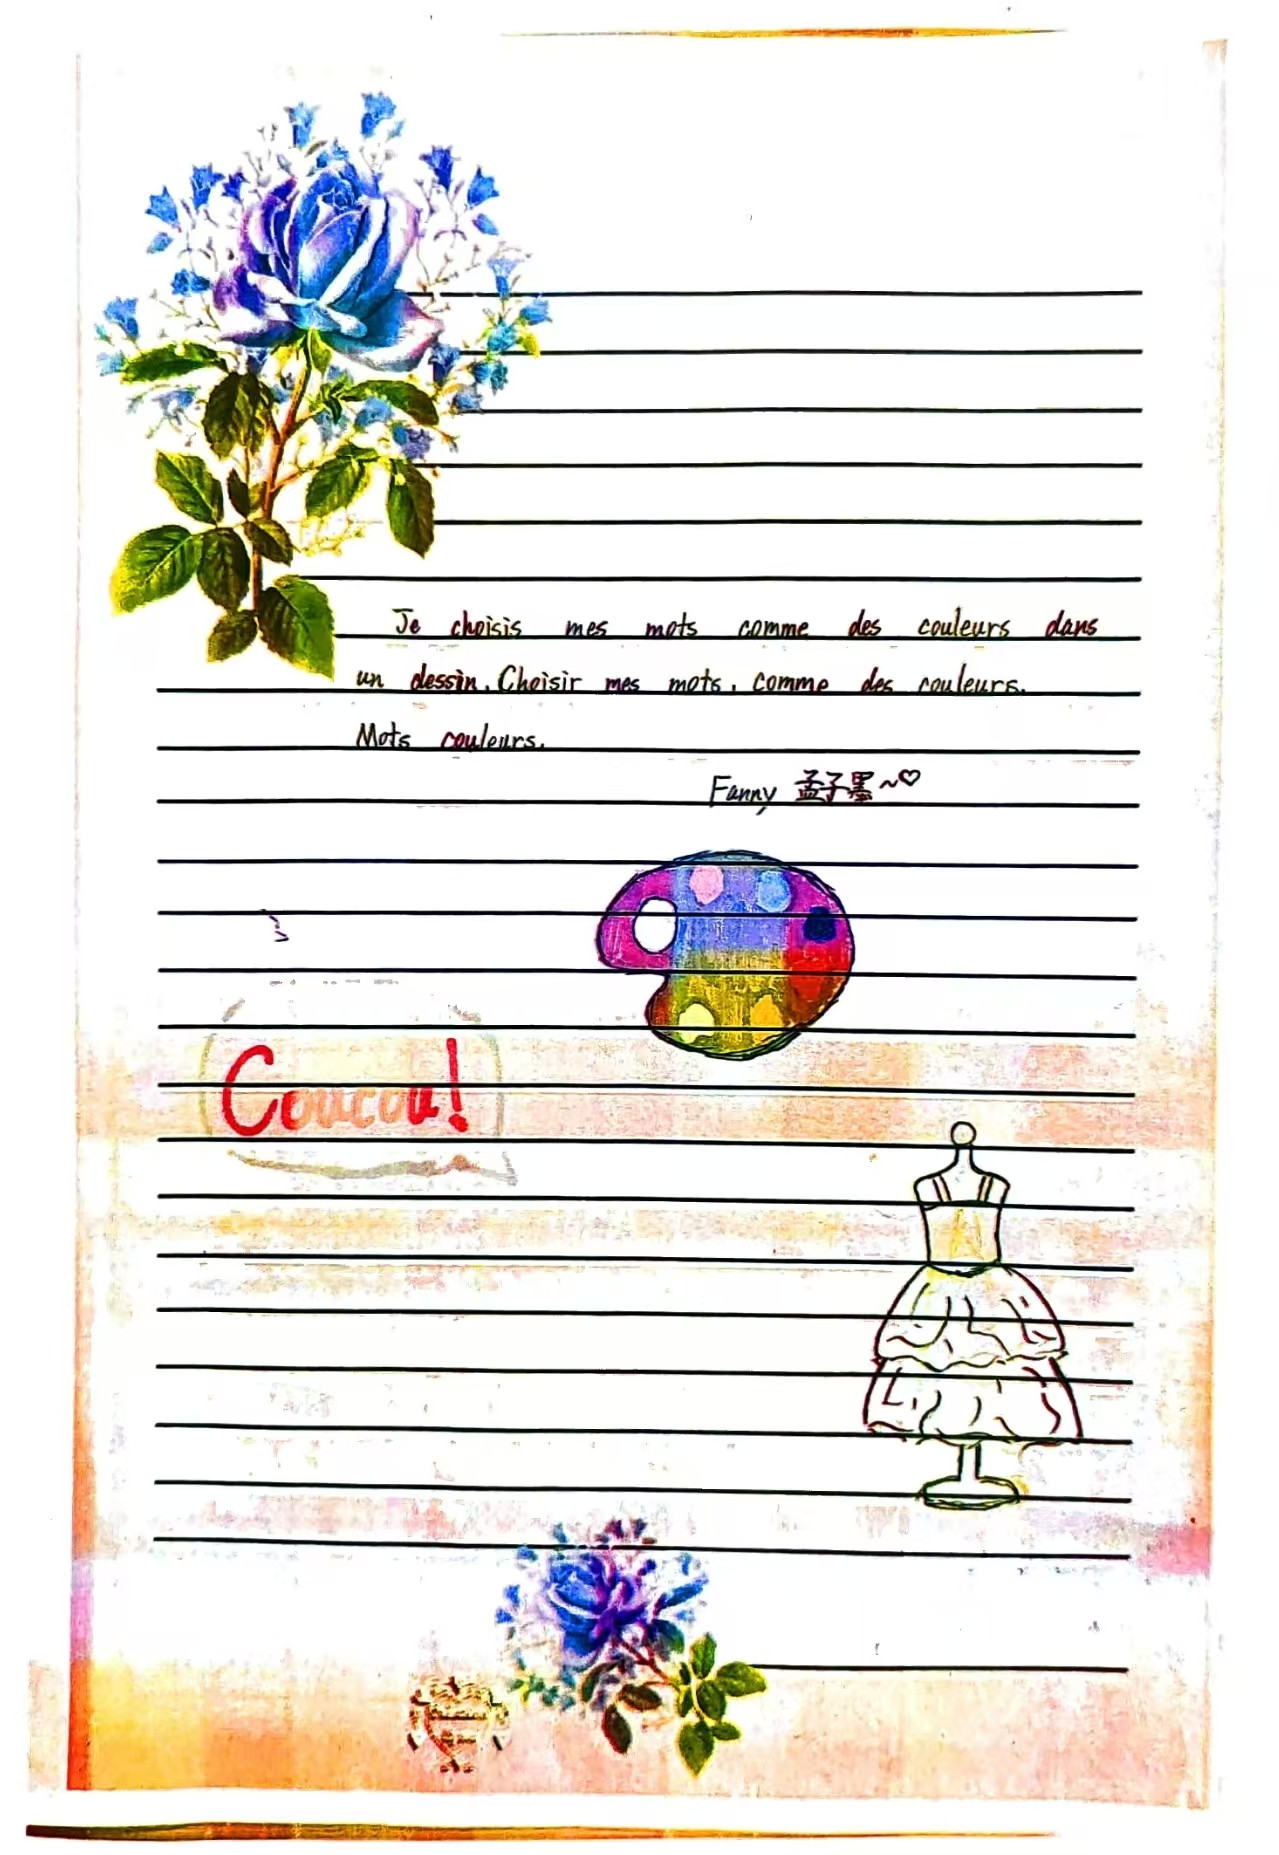 Je choisis mes mots comme des couleurs dans
un dessin. Choisir mes mots, comme des couleurs.
Mots couleurs.
Fanny 孟子墨~♡
Coucou!